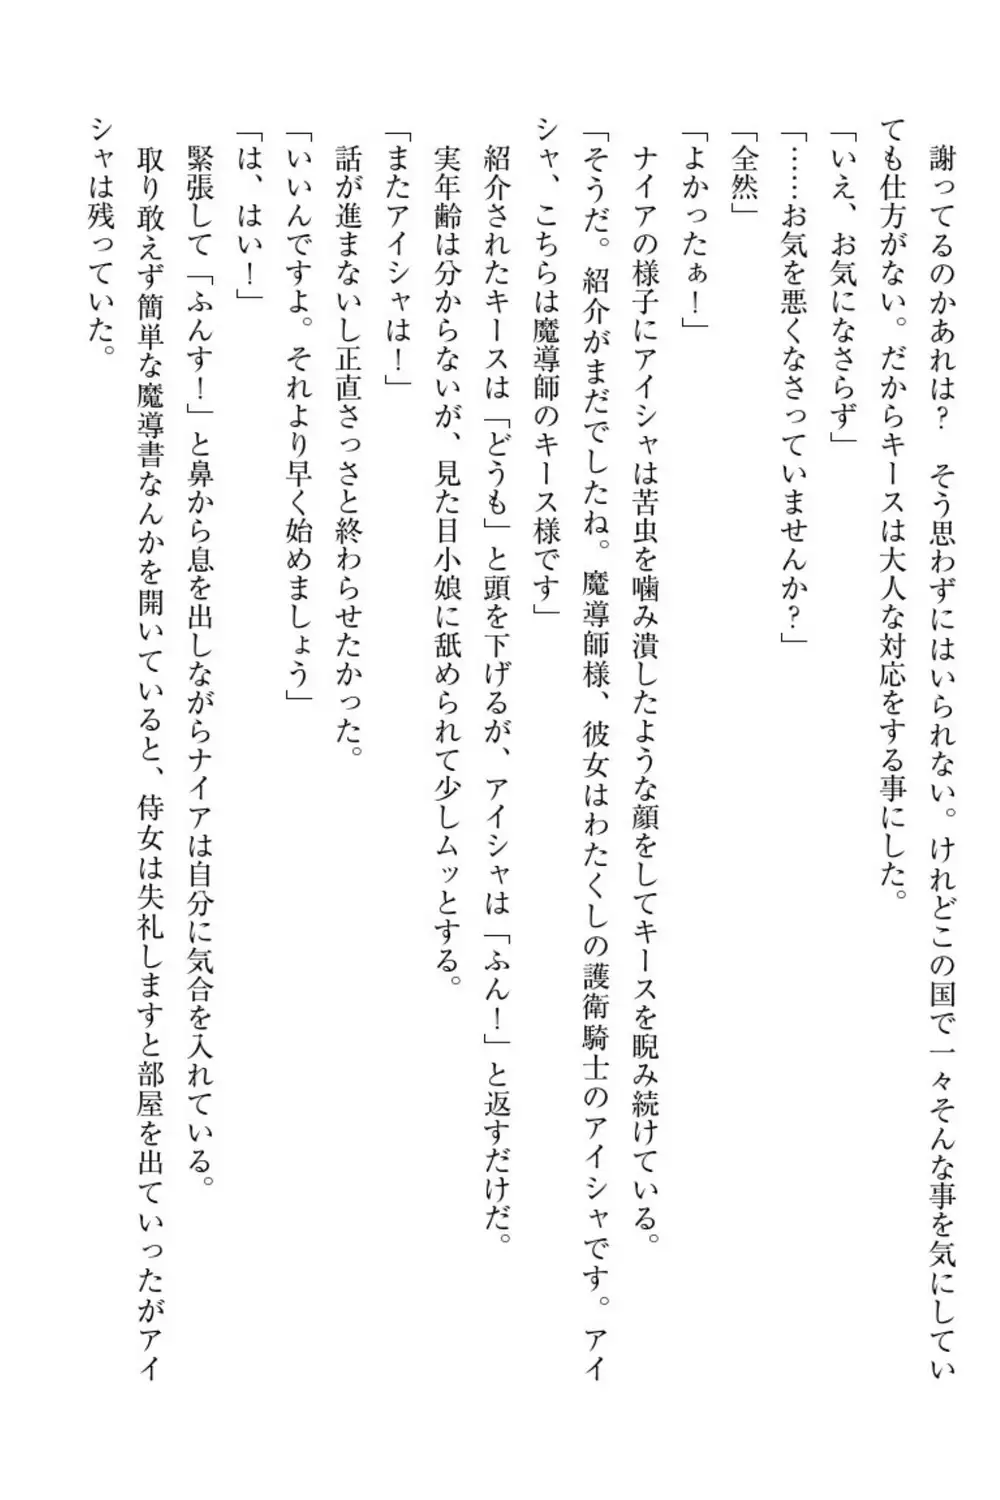 謝ってるのかあれは？　そう思わずにはいられない。けれどこの国で一々そんな事を気にしてい
ても仕方がない。だからキースは大人な対応をする事にした。
「いえ、お気になさらず」
「……お気を悪くなさっていませんか？」
「全然」
「よかったぁ！」
　ナイアの様子にアイシャは苦虫を噛み潰したような顔をしてキースを睨み続けている。
「そうだ。紹介がまだでしたね。魔導師様、彼女はわたくしの護衛騎士のアイシャです。アイ
シャ、こちらは魔導師のキース様です」
　紹介されたキースは「どうも」と頭を下げるが、アイシャは「ふん！」と返すだけだ。
　実年齢は分からないが、見た目小娘に舐められて少しムッとする。
「またアイシャは！」
　話が進まないし正直さっさと終わらせたかった。
「いいんですよ。それより早く始めましょう」
「は、はい！」
　緊張して「ふんす！」と鼻から息を出しながらナイアは自分に気合を入れている。
　取り敢えず簡単な魔導書なんかを開いていると、侍女は失礼しますと部屋を出ていったがアイ
シャは残っていた。